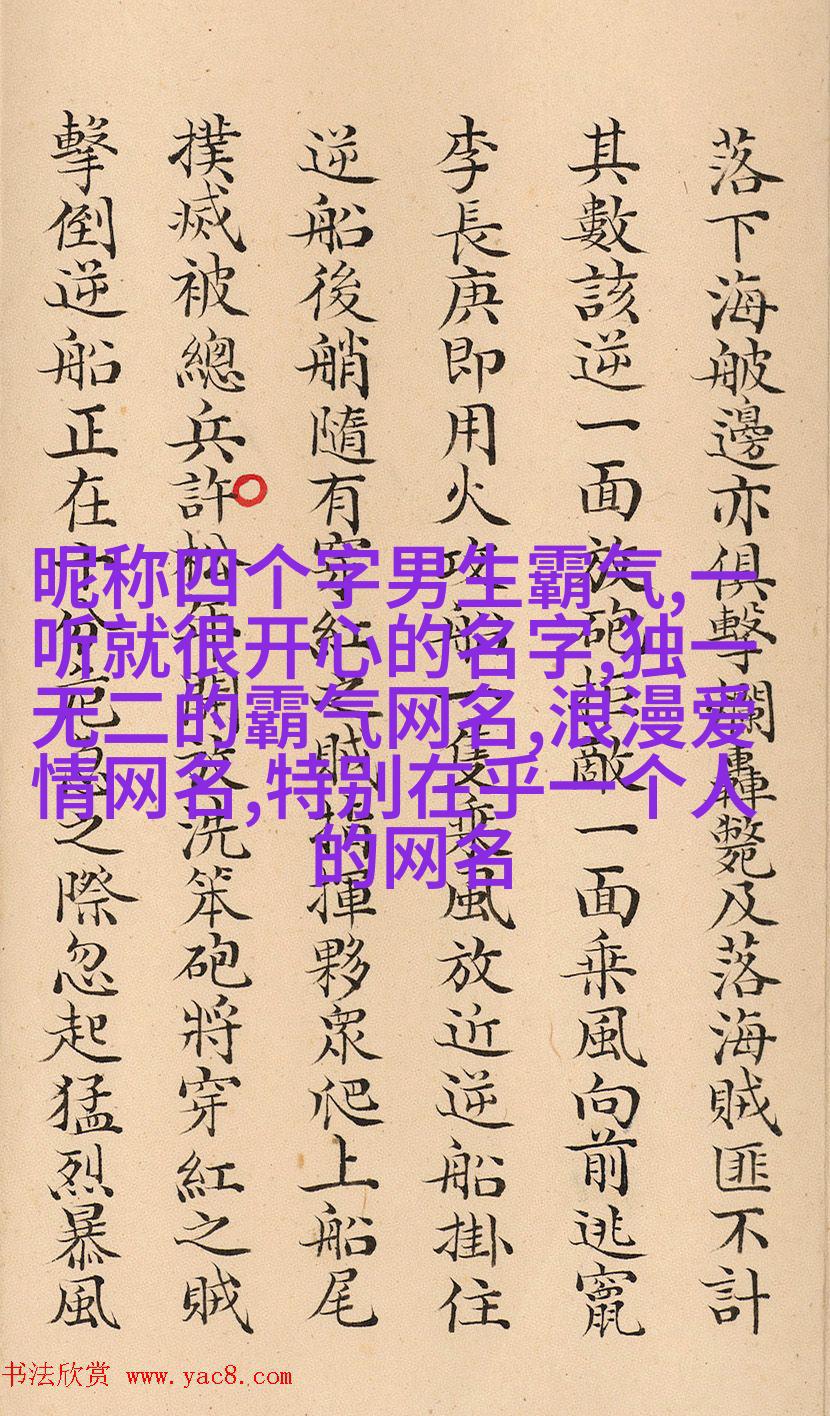 落下海邊亦俱擊爛轟斃及落海賊匪不計
其數該逆一面放砲拒敵一面乘風向前逃竄
李長庚即用火攻船一隻乘風放近逆船掛住
逆船後艄隨有穿紅之賊指揮夥眾爬上船尾
撲滅被總兵許松年開放洗笨砲將穿紅之賊
擊倒逆船正在十分危急之際忽起猛烈暴風
昵称四个字男生霸气,一
听就很开心的名字,独一
无二的霸气网名,浪漫爱
情网名,特别在乎一个人
的网名
书法欣赏 www.yac8.com